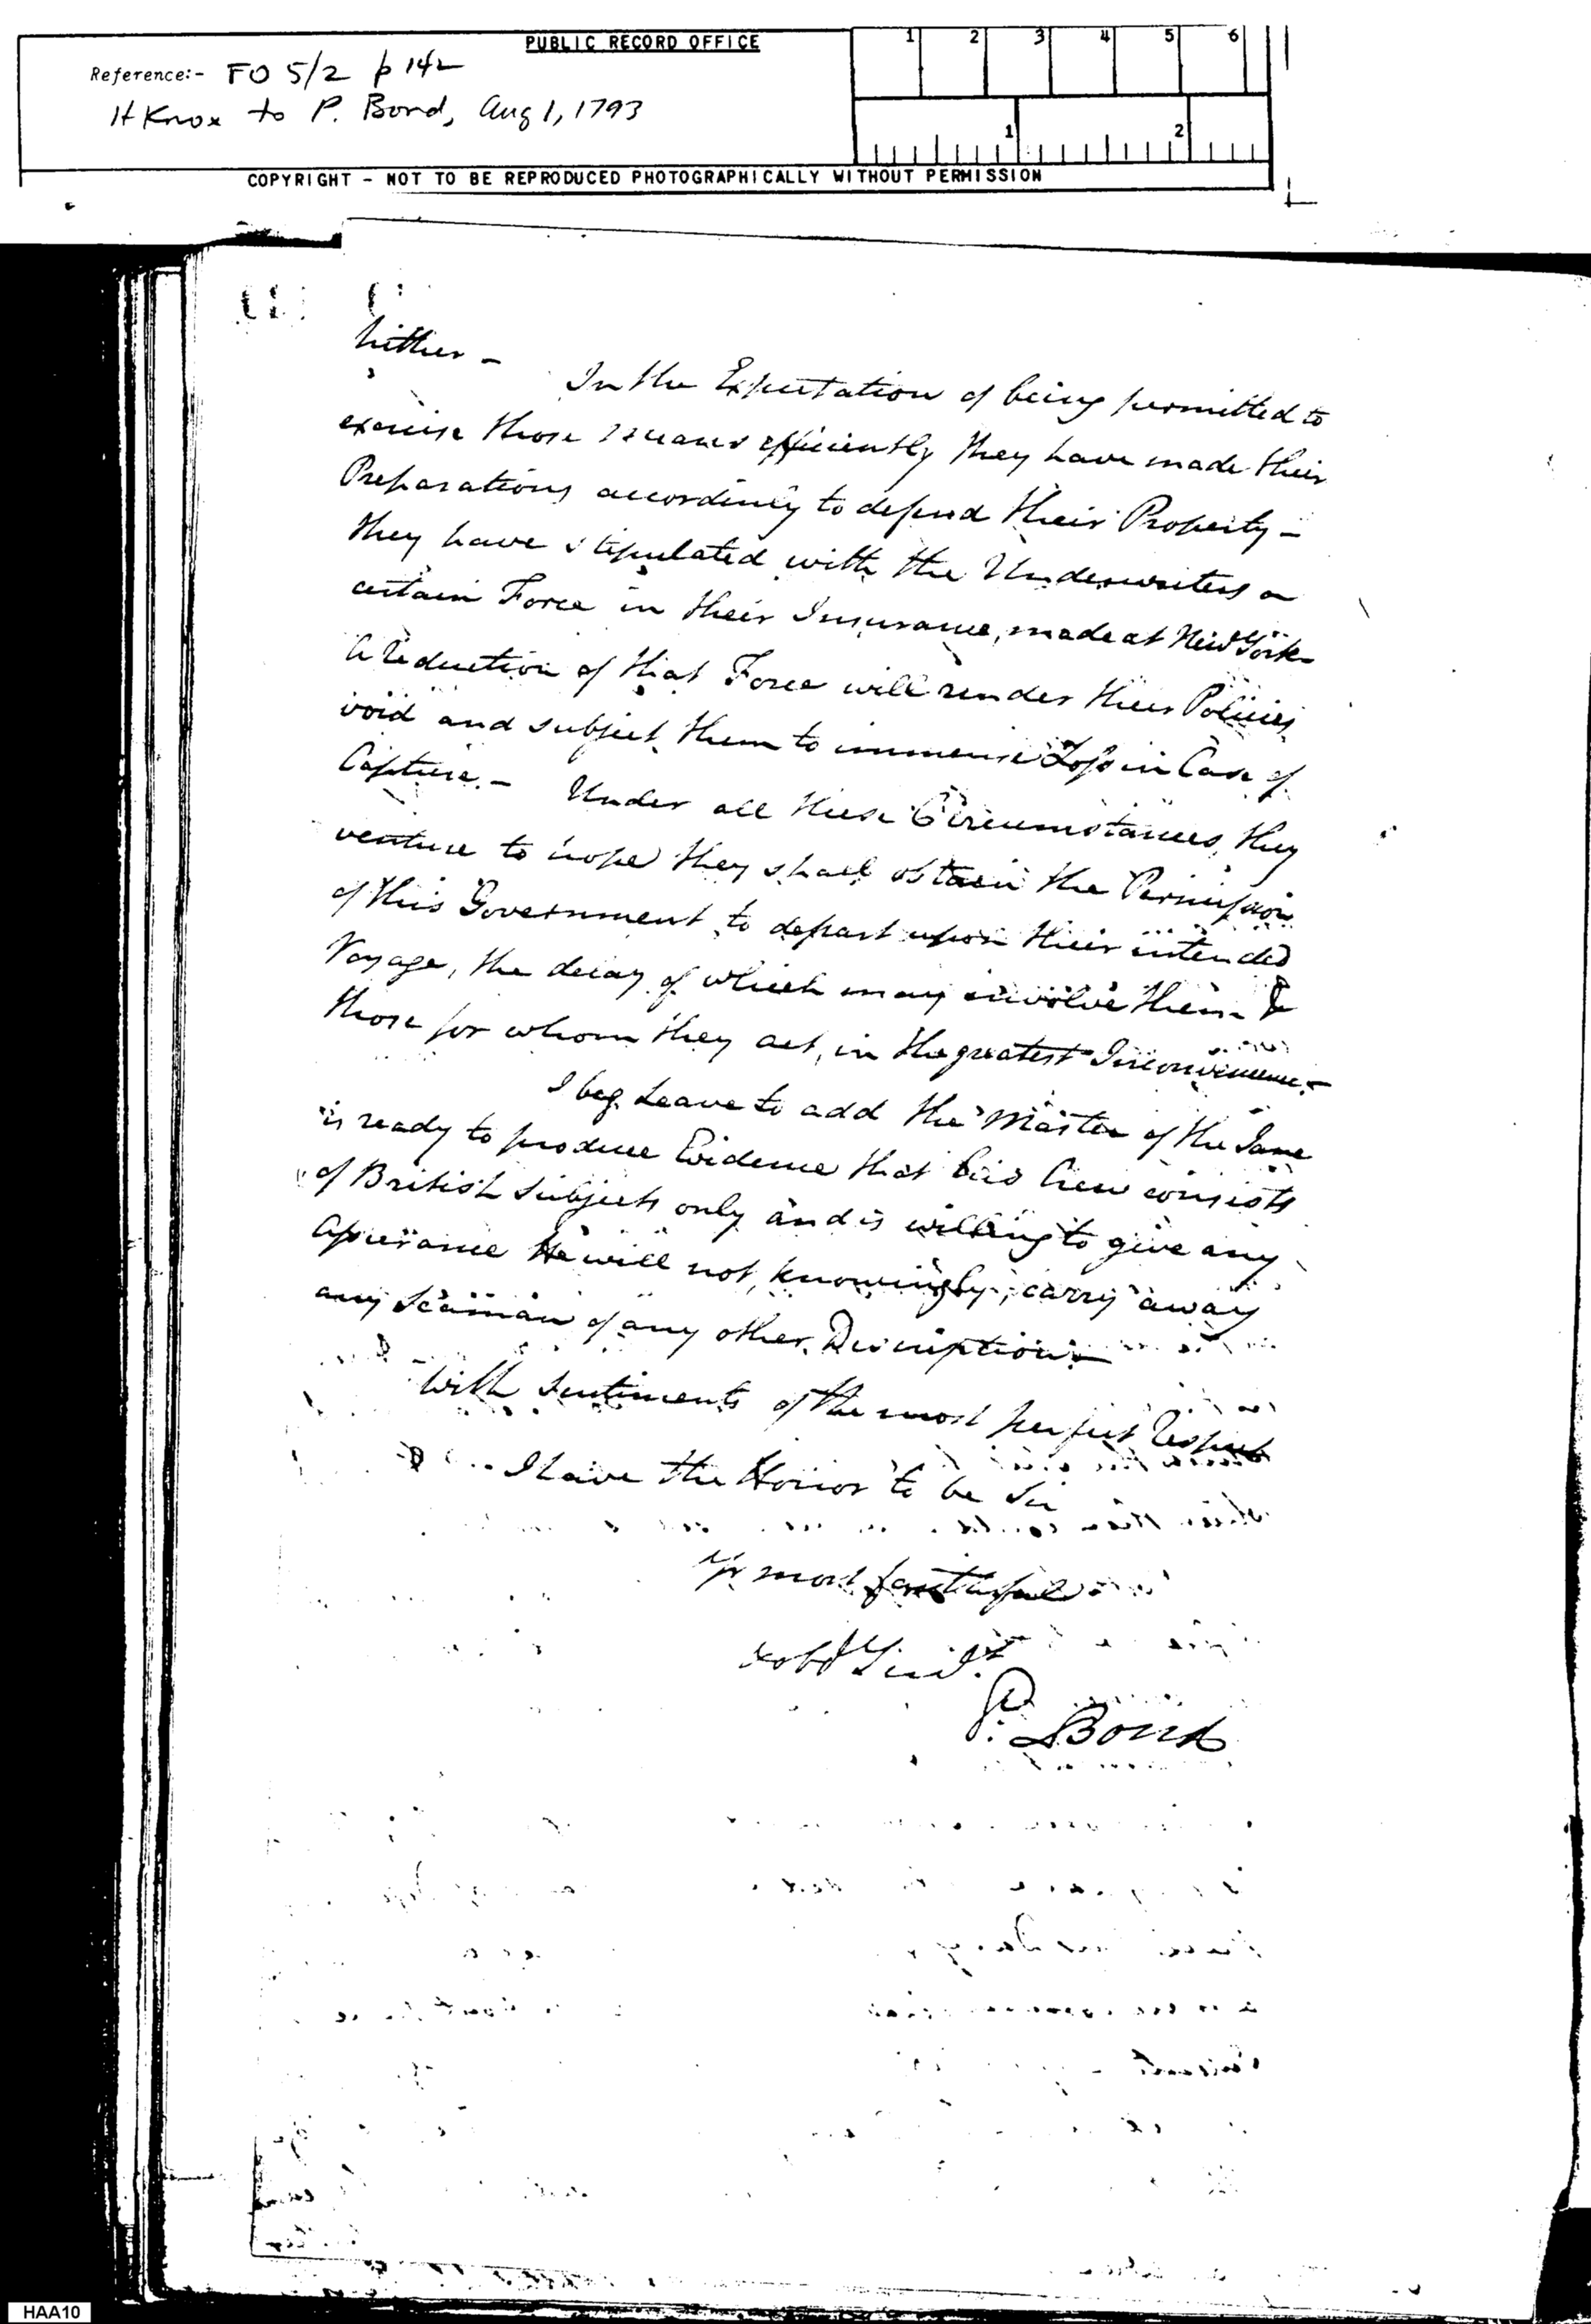 PUBLIC RECORD OFFICE
Reference:- FO 5/2 p 142
H Knox to P. Bond, Aug 1, 1793
1 2 3 4 5 6
1 2
COPYRIGHT - NOT TO BE REPRODUCED PHOTOGRAPHICALLY WITHOUT PERMISSION
hither -
In the Expectation of being permitted to
exercise those means efficiently they have made their
Preparations accordingly to defend their Property -
they have stipulated with the Underwriters a
certain Force in their Insurance, made at New York
A reduction of that Force will render their Policies
void and subject them to immense Loss in Case of
Capture. - Under all these Circumstances, they
venture to hope they shall obtain the Permission
of this Government to depart upon their intended
Voyage, the delay of which may involve them &
those for whom they act, in the greatest Inconvenience. -
I beg Leave to add the Master of the Jane
is ready to produce Evidence that his Crew consists
of British Subjects only and is willing to give any
Assurance He will not, knowingly, carry away
any Seaman of any other Description -
With Sentiments of the most perfect Respect
I have the Honor to be Sir
Yr most faithful
& obd Servt
P. Bond
HAA10